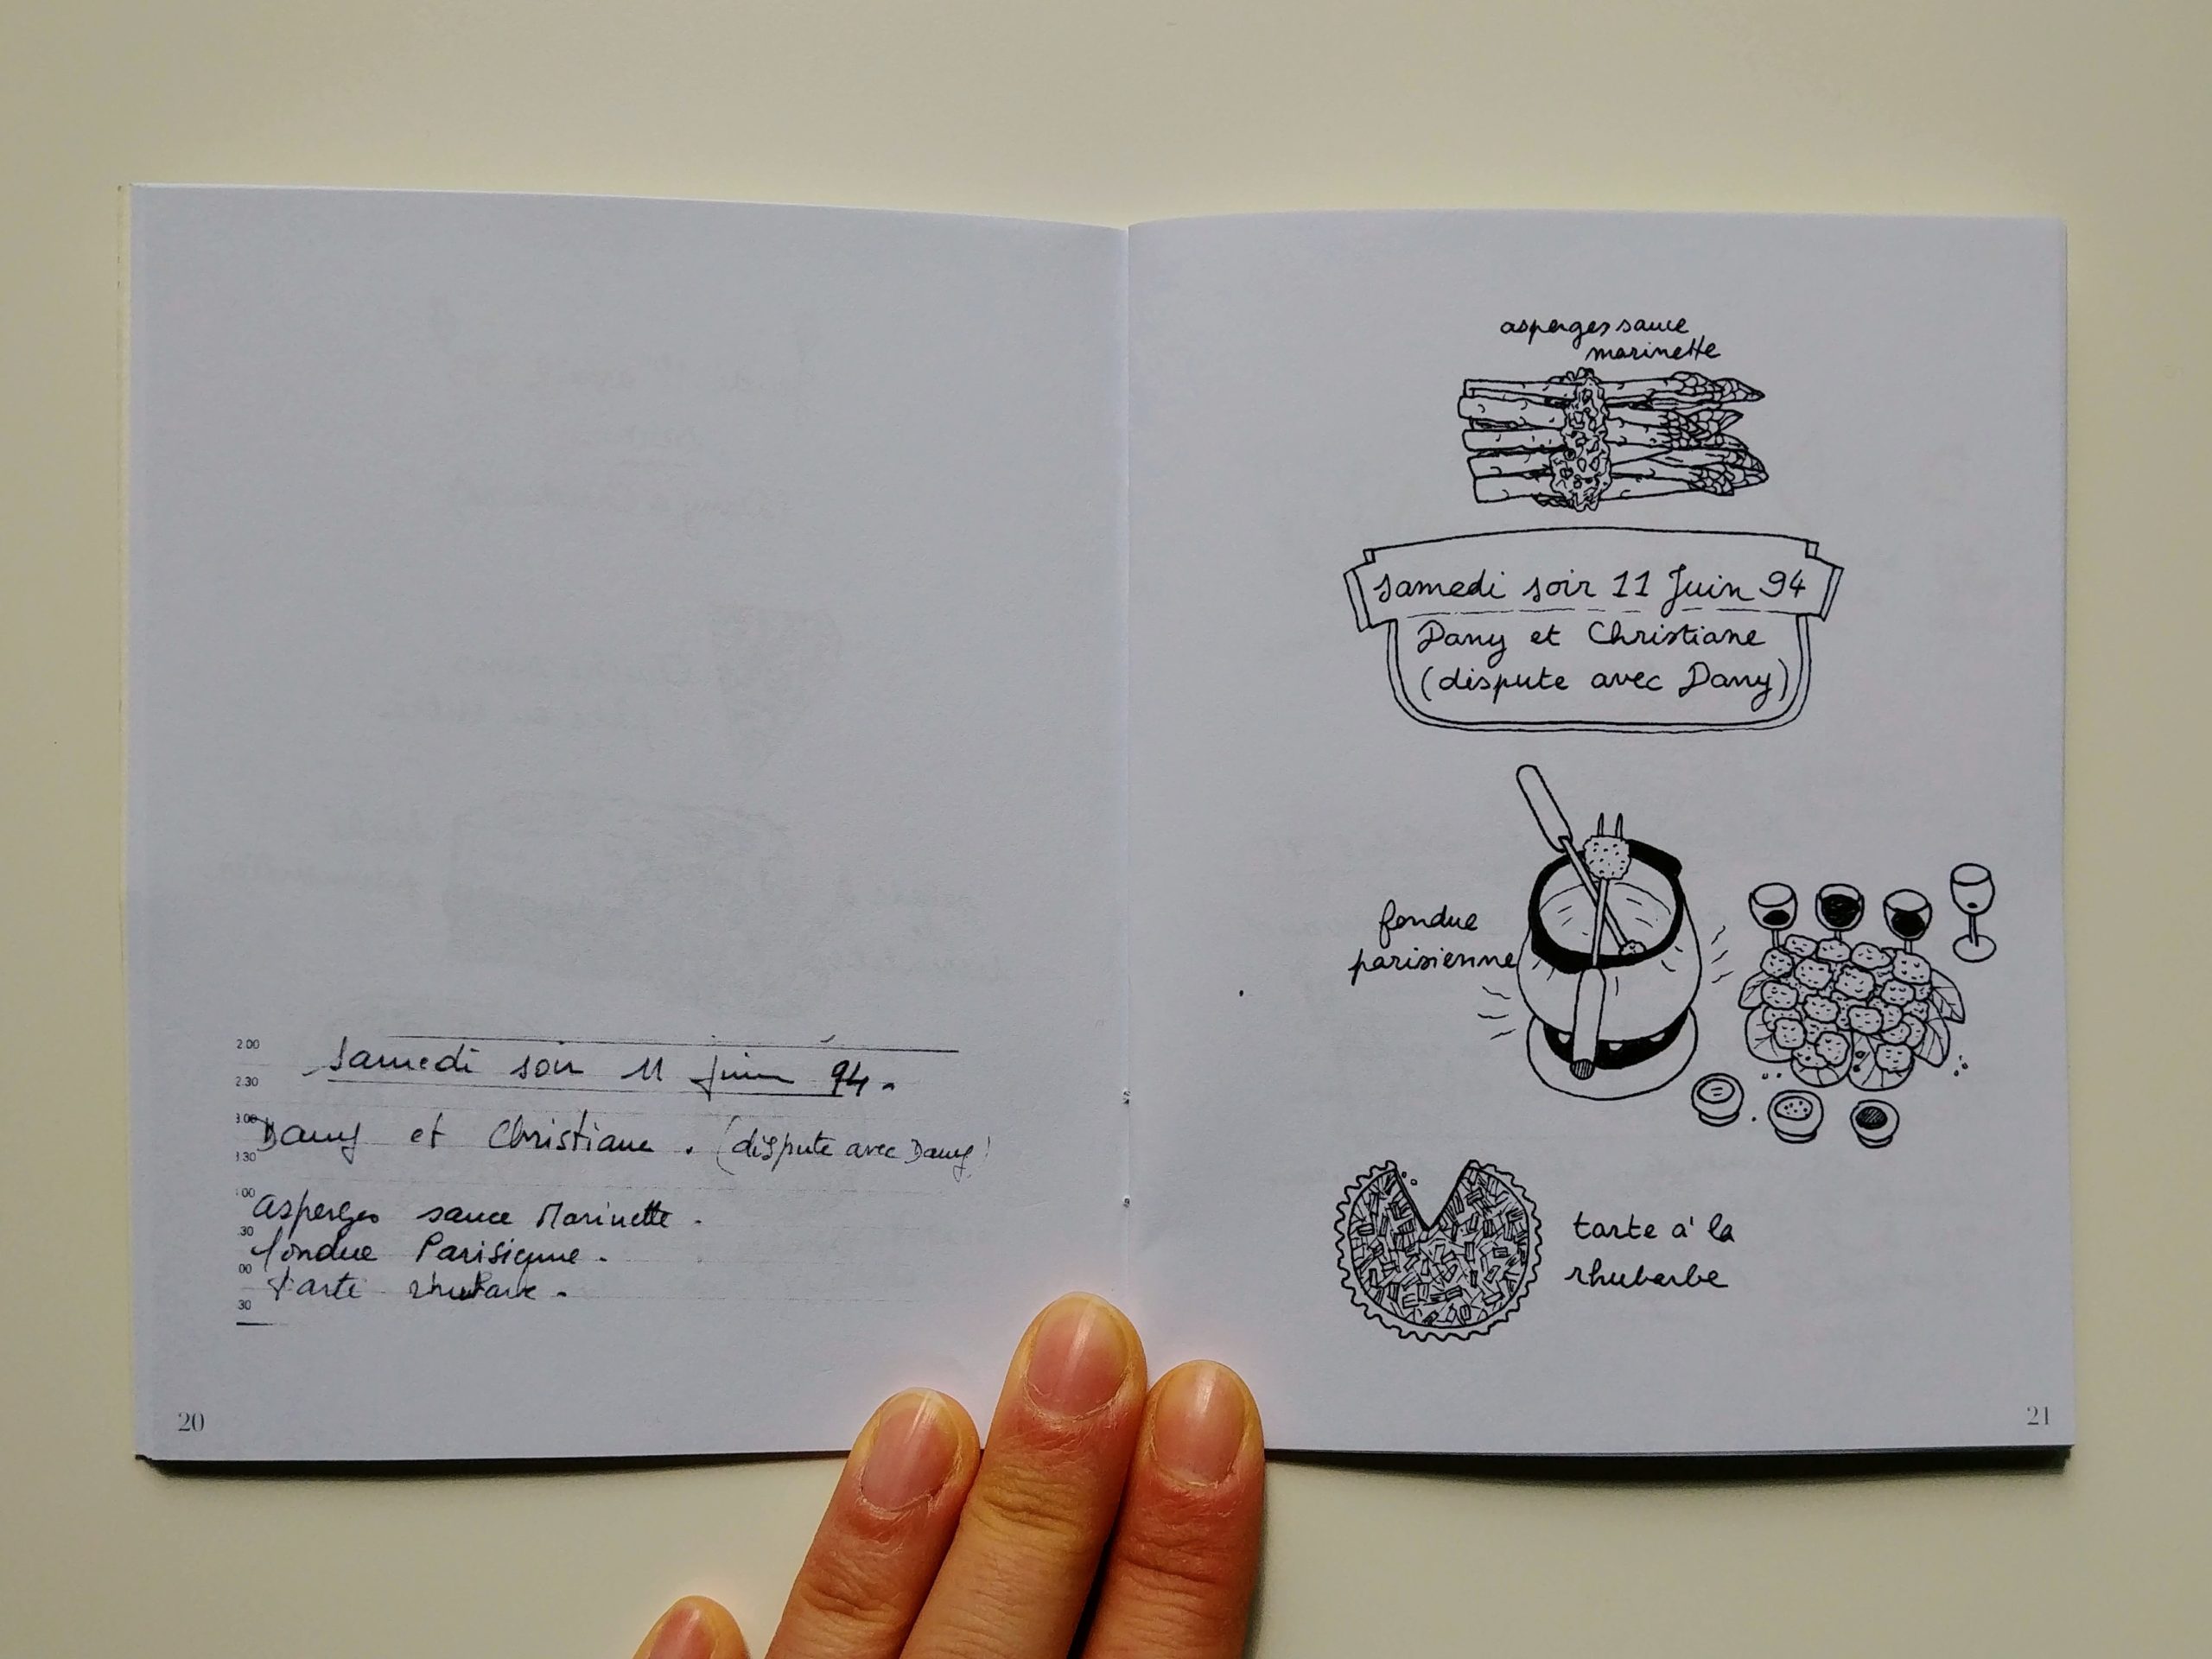 2.00
samedi soir 11 juin 94.
2.30
3.00
Dany et Christiane. (dispute avec Dany)
3.30
00
asperges sauce Marinette.
30
fondue Parisienne.
00
tarte rhubarbe.
30
20
asperges sauce
marinette
samedi soir 11 Juin 94
Dany et Christiane
(dispute avec Dany)
fondue
parisienne
tarte à la
rhubarbe
21